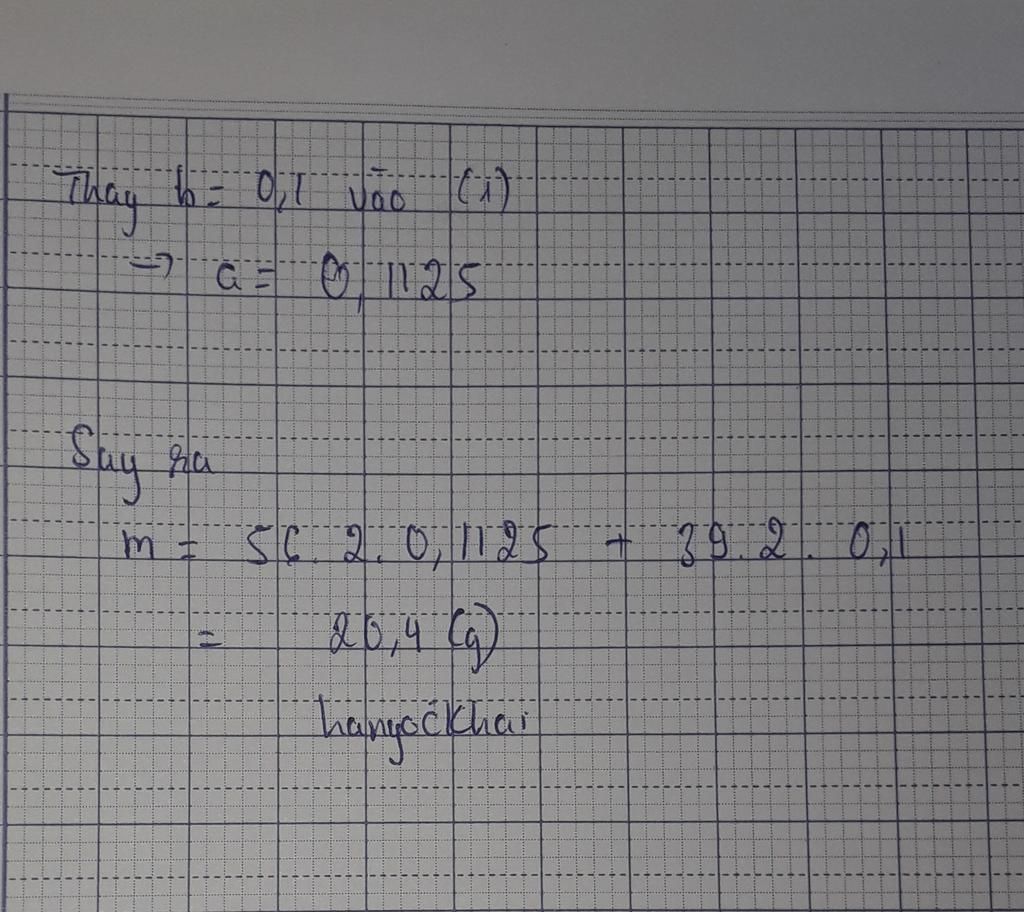 Thay b = 0,1 vào (1)
→ a = 0,1125
Suy ra
m = 56. 2. 0,1125 + 39. 2. 0,1
= 20,4 (g)
hangockhai